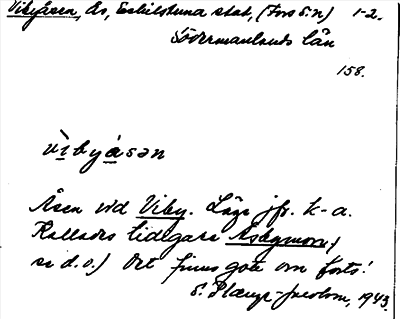 Vibyåsen, Ås, Eskilstuna stad, (Fors sn) 1-2.
Södermanlands län
158.
vìbyásən
Åsen vid Viby. Läge jfr. k-a.
Kallades tidigare Åsbymon,
se d. o.) Det finns gott om forts!
S. 1943.